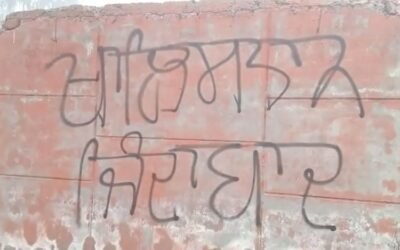 ਖਾਲਿਸਤਾਨ
ਜਿੰਦਾਬਾਦ